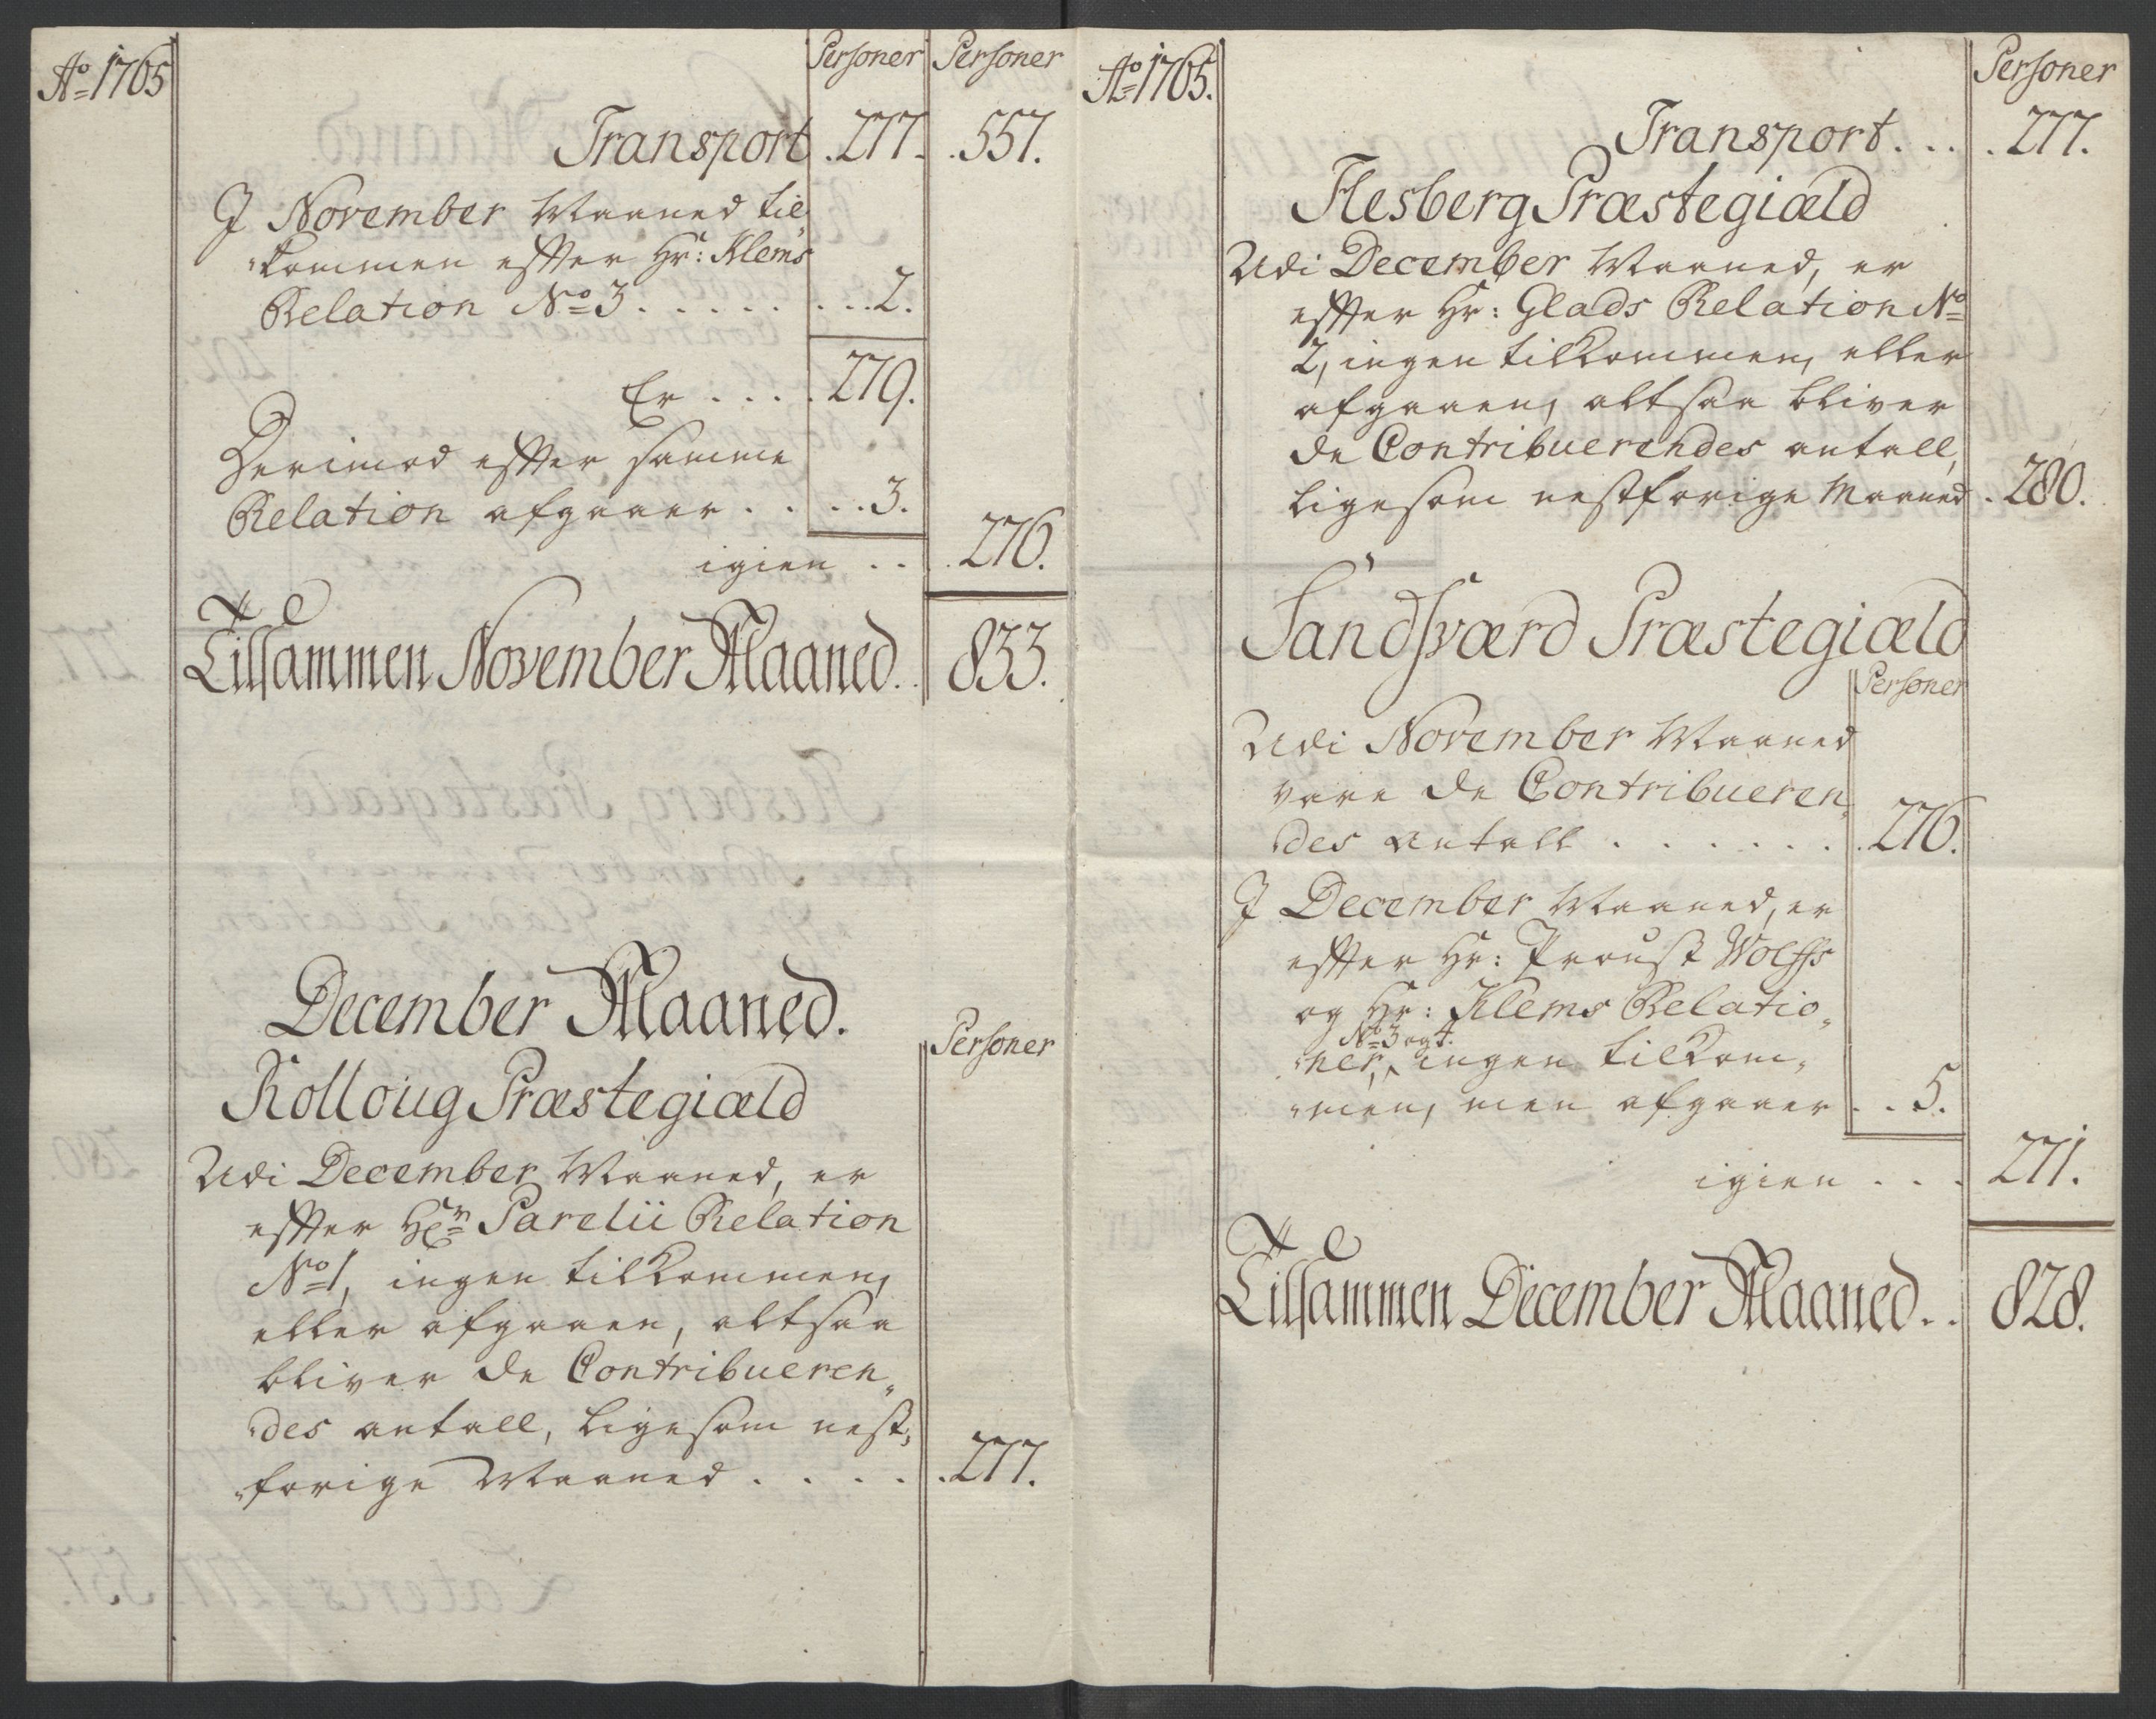 Ao 1765
Personer Personer
Transport . 277. . 557.
J November Maaned til
„kommen effter Hr: Klems
Relation No 3. . . . . . . . 2.
Er . . . . 279.
Derimod effter samme
Relation afgaaer . . . . 3.
igien . . . 276.
Tilsammen November Maaned. . 833.
December Maaned.
Personer
Rolloug Præstegiæld
Udi December Maaned, er
effter Hrn Parelii Relation
No 1, ingen tilkommen,
eller afgaaen, altsaa
bliver de Contribueren„
„des antall, ligesom nest„
„forige Maaned . . . . . 277.
Ao 1765.
Personer
Transport . . . . 277.
Flesberg Præstegiæld
Udi December Maaned, er
effter Hr: Glads Relation No
2, ingen tilkommen, eller
afgaaen, altsaa bliver
de Contribuerendes antall,
ligesom nestforige Maaned . 280.
Sandsværd Præstegiæld
Personer
Udi November Maaned
vare de Contribueren„
„des antall . . . . . . . 276.
J December Maaned, er
effter Hr: Proust Wolffs
og Hr: Klems Relatio„
No 3 og 4.
„ner, ingen tilkom„
„men, men afgaaer . . 5.
igien . . . 271.
Tilsammen December Maaned. . 828.